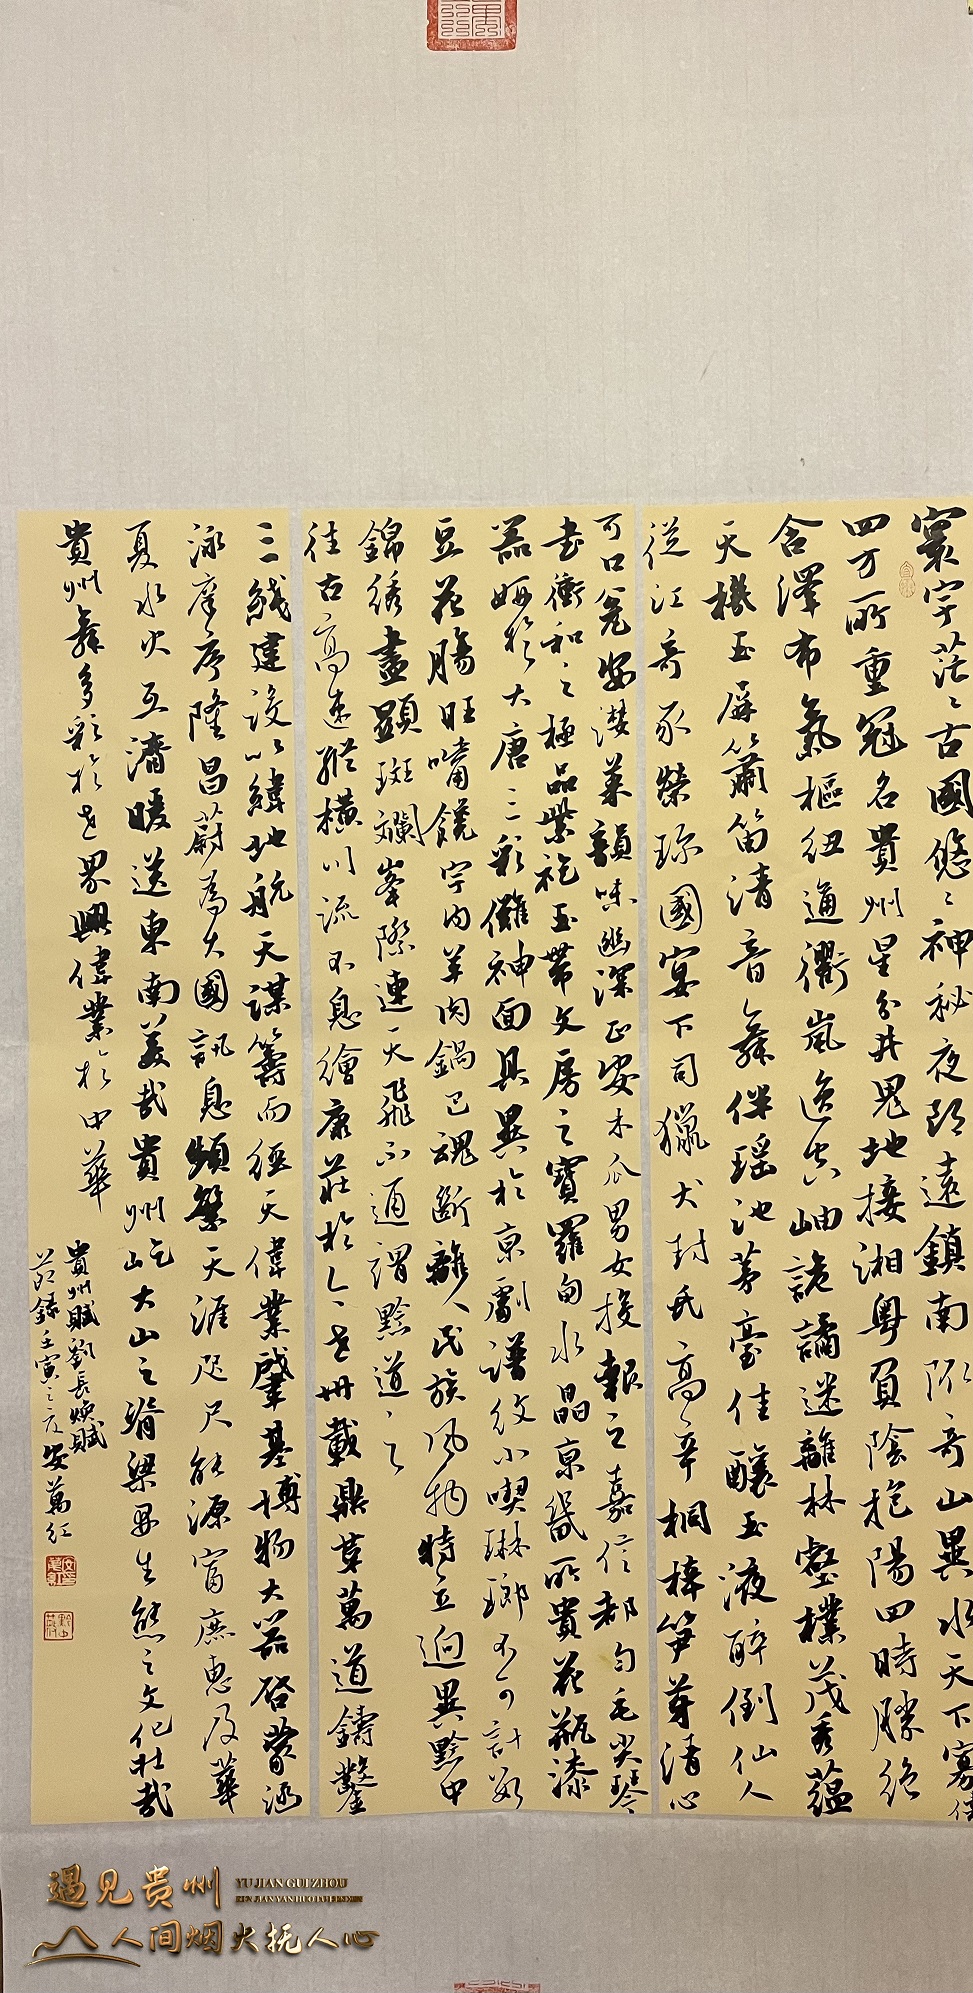 寰宇茫茫古國悠悠神秘夜郎遠鎮南陬奇山異水天下寡儔
四方所重冠名貴州星分井鬼地接湘粵負陰抱陽四時勝絕
含澤布氣樞紐通衢嵐逸出岫詭譎迷離林壑樸茂秀蘊
天機玉屏簫笛清音舞伴瑤池茅臺佳釀玉液醉倒仙人
從江香豕榮珍國宴下司獵犬封氏高辛桐梓筍芽清心
可口瓮安漤菜韻味幽深正安木瓜男女投報之嘉信都勻毛尖琴
書衝和之極品紫袍玉帶文房之寶羅甸水晶京畿所貴花瓶漆
器媲於大唐三彩儺神面具異於京劇譜紋小喫琳瑯不可計數
豆花腸旺嘴饞字内羊肉鍋巴魂斷離人民族風物特立迥異黔中
錦綉盡顯斑斕峯際連天飛不通謂黔道之
往古高速縱橫川流不息繪康莊於今世卅載鼎革萬道鑄鑿
三綫建設以緯地航天謀籌而經天偉業肇基博物大器啓蒙涵
泳庠序隆昌蔚為大國訊息頻繁天涯咫尺能源富庶惠及華
夏水火互濟暖送東南美哉貴州屹大山之脊梁畀生態之文化壯哉
貴州舞多彩於世界興偉業於中華
貴州賦劉長煥賦
并錄壬寅之夏安萬红
遇见贵州
YU JIAN GUI ZHOU
REN JIAN YAN HUO FU REN XIN
人间烟火抚人心